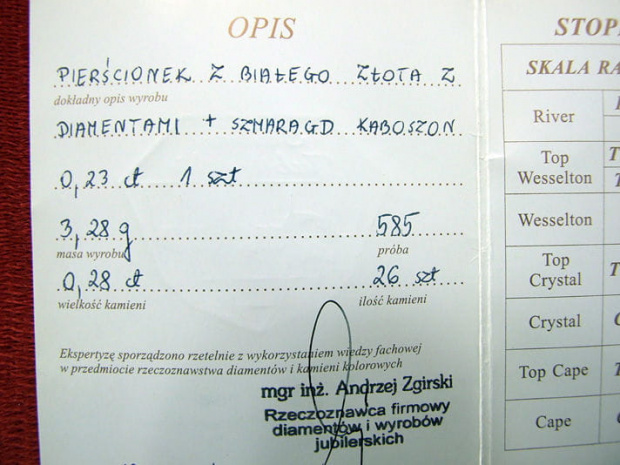 OPIS
PIERŚCIONEK Z BIAŁEGO ZŁOTA Z
dokładny opis wyrobu
DIAMENTAMI + SZMARAGD KABOSZON
0,23 ct 1 szt
3,28 g 585
masa wyrobu próba
0,28 ct 26 szt
wielkość kamieni ilość kamieni
Ekspertyzę sporządzono rzetelnie z wykorzystaniem wiedzy fachowej
w przedmiocie rzeczoznawstwa diamentów i kamieni kolorowych
mgr inż. Andrzej Zgirski
Rzeczoznawca firmowy
diamentów i wyrobów
jubilerskich
SKALA
River
Top
Wesselton
Wesselton
Top
Crystal
Crystal
Top Cape
Cape